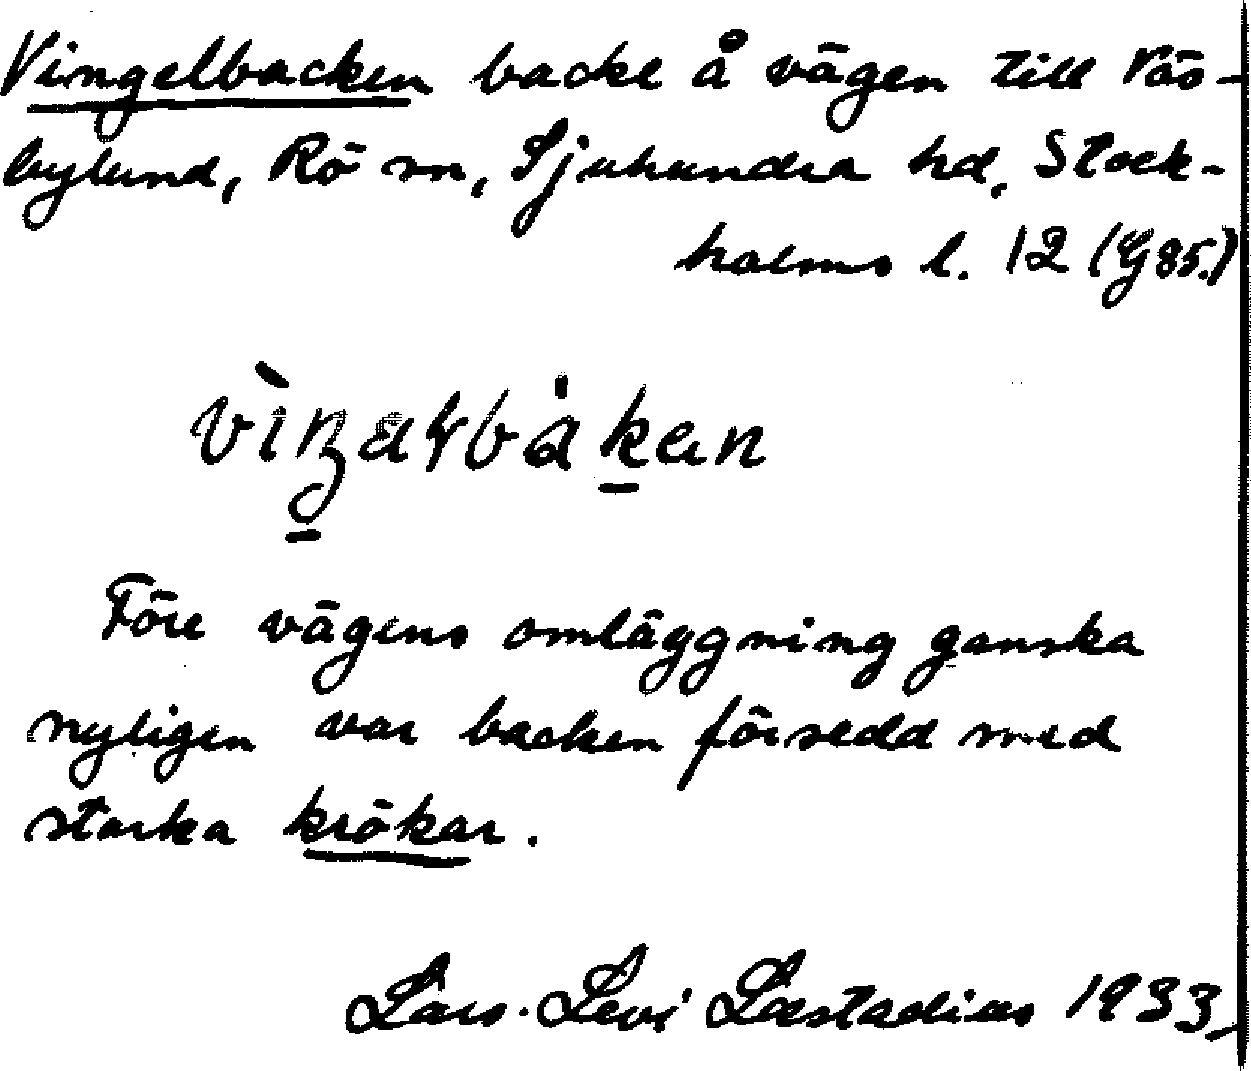 Vingelbacken backe å vägen till Rös-
bylund, Rö sn, Sjuhundra hd, Stock-
holms l. 12 (G 85.)
Före vägens omläggning ganska
nyligen var backen försedd med
starka krökar.
Lars-Levi Læstadius 1933